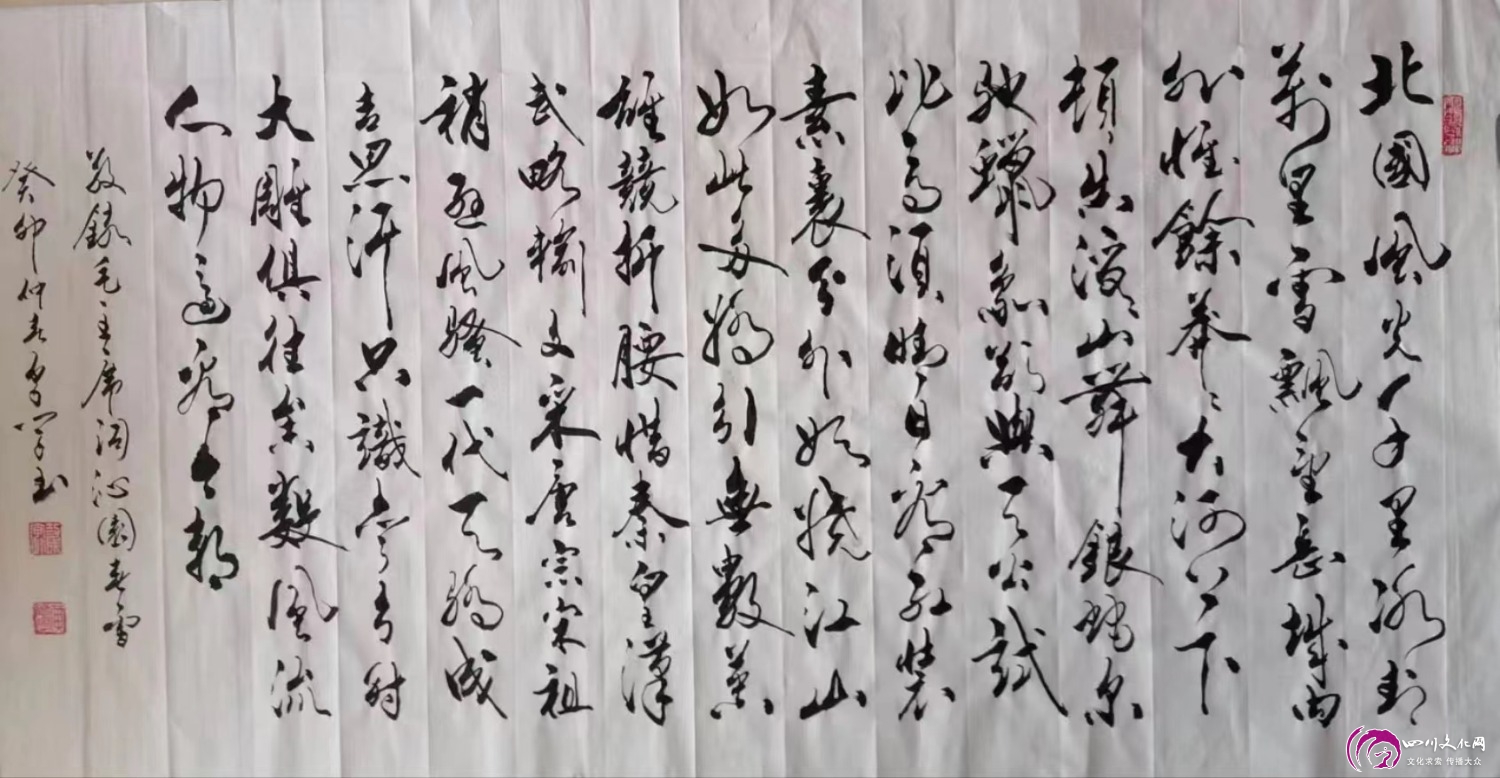 北國風光千里冰封
萬里雪飄望長城內
外惟餘莽〻大河上下
頓失滔〻山舞銀蛇原
馳蠟象欲與天公試
比高須晴日看紅裝
素裹分外妖嬈江山
如此多嬌引無數英
雄競折腰惜秦皇漢
武略輸文采唐宗宋祖
稍遜風騷一代天驕成
吉思汗只識彎弓射
大雕俱往矣數風流
人物還看今朝
敬錄毛主席詞沁園春雪
癸卯仲春學書
四川文化网
文化求索 传播大众